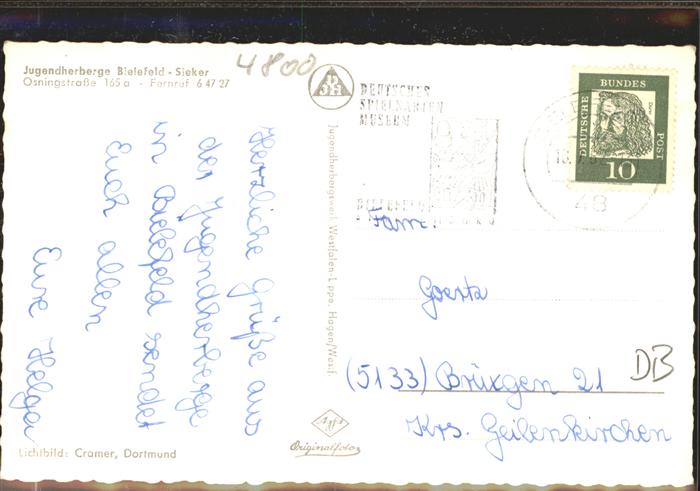 Jugendherberge Bielefeld - Sieker
Osningstraße 165 a - Fernruf 6 47 27
4800
Herzliche Grüße aus
der Jugendherberge
in Bielefeld sendet
Euch allen
Eure Helga
Lichtbild: Cramer, Dortmund
DJH
Jugendherbergswerk Westfalen-Lippe, Hagen/Westf.
Agfa
Originalfoto
DEUTSCHES
SPIELKARTEN
MUSEUM
BIELEFELD
48
DEUTSCHE BUNDES POST
Dürer
10
Fam.
Goerta
(5133) Brüxgen 21
Krs. Geilenkirchen
DB